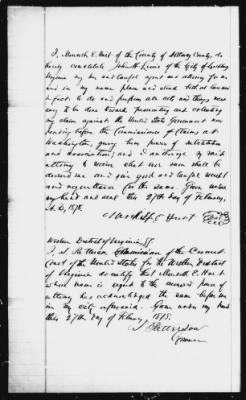 I, Marshall C. Hurt of the County of Kelony County, do
hereby constitute John H. Lewis of the City of Lynchburg
Virginia my true and lawful agent and attorney for me
and in my name place and stead that at law or
in fact to do and perform all acts and things neces-
sary to be done toward presenting and collecting
my claim against the United States Government now
pending before the Commissioners of Claims at
Washington, giving him power of substitution
and revocation; and I authorize my said
attorney to receive what ever sum shall be
decreed me and give good and lawful receipt
and acquittance for the same. Given under
my hand and seal this 27th day of February,
A. D. 1875.
Marshall C Hurt
Western District of Virginia SS
I, Commissioner of the Circuit
Court of the United States for the Western District
of Virginia do certify that Marshall C. Hurt
whose name is signed to the annexed power of
attorney has acknowledged the same before me
in my city aforesaid. Given under my hand
this 27th day of February, 1875.